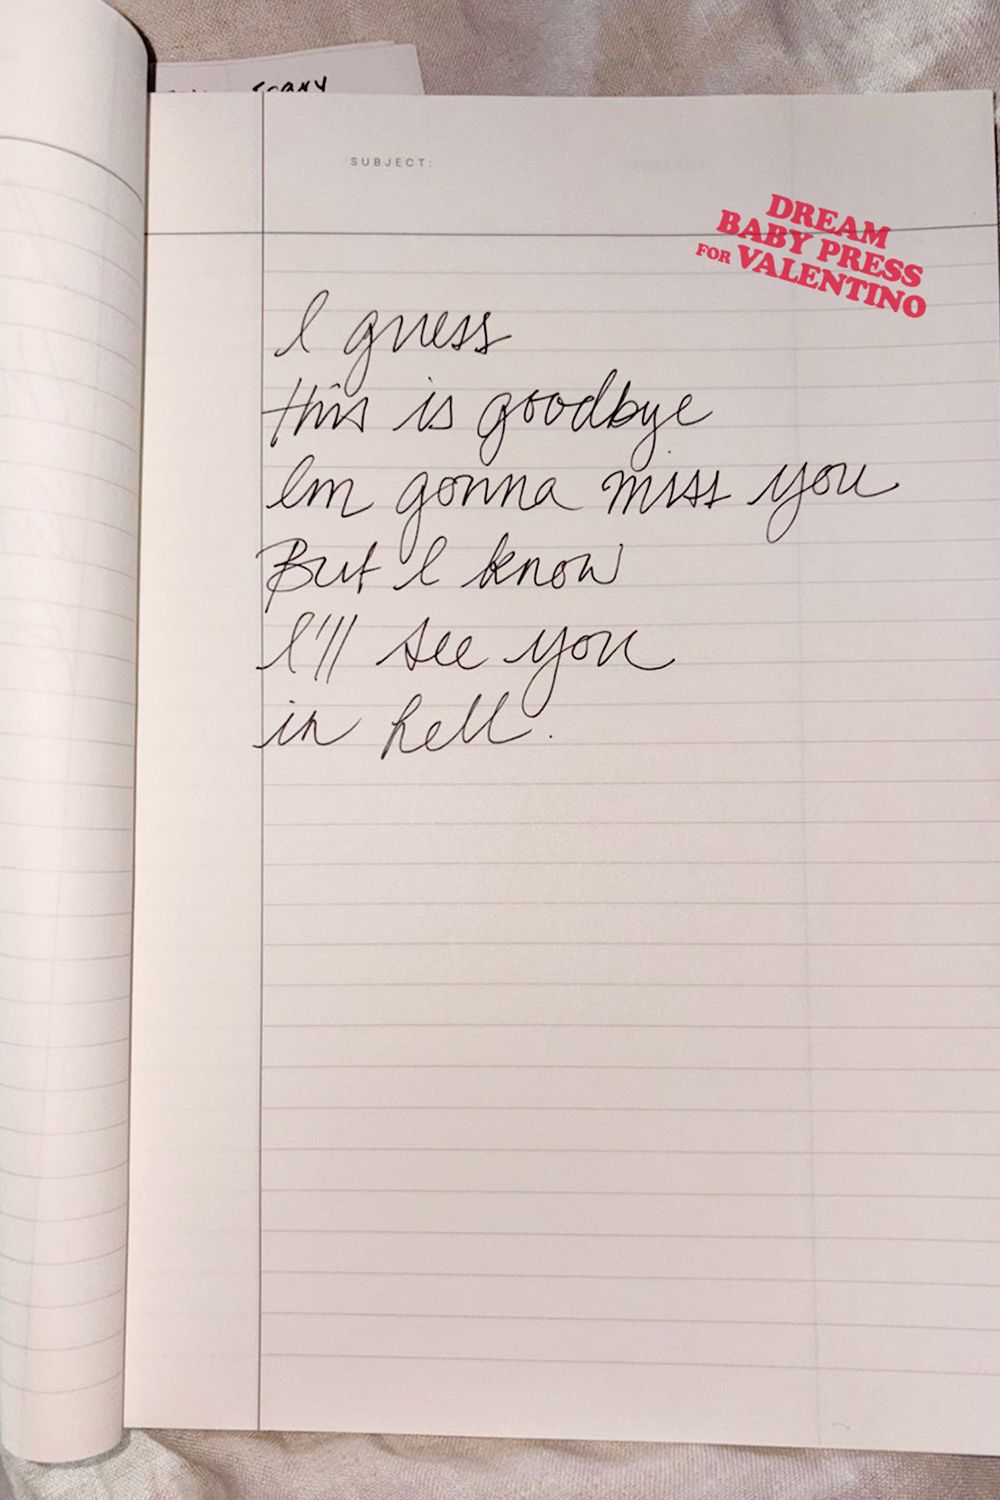 SUBJECT:
DREAM
BABY PRESS
FOR VALENTINO
I guess
this is goodbye
Im gonna miss you
But I know
I'll see you
in hell.